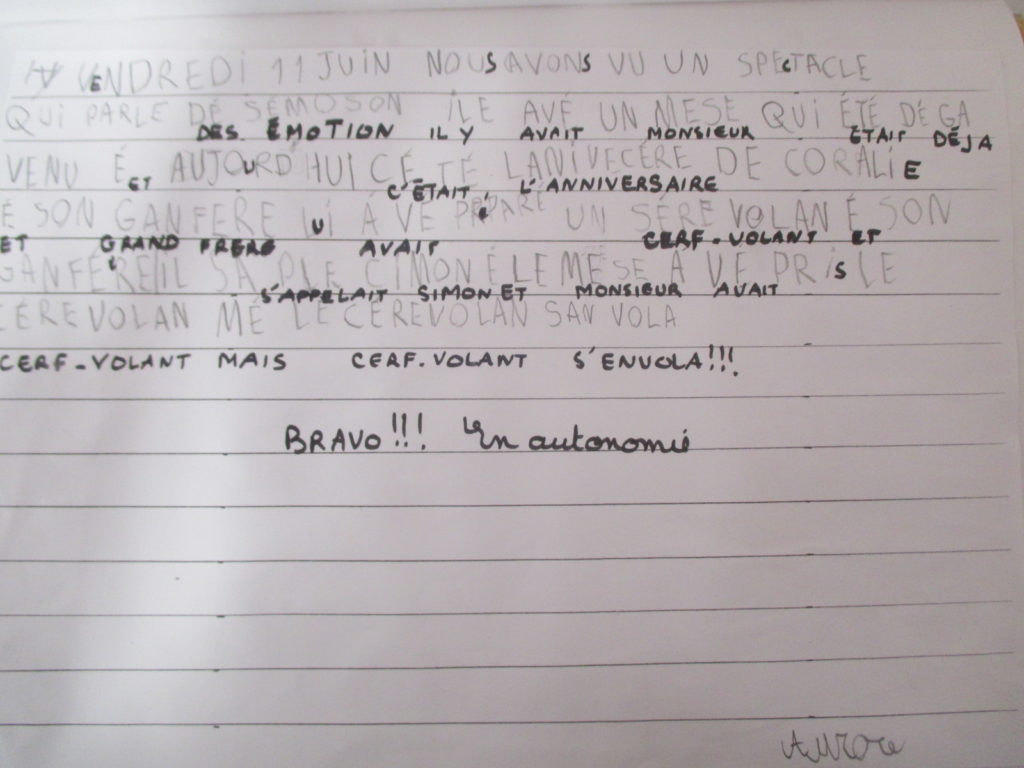 VENDREDI 11 JUIN NOUS AVONS VU UN SPECTACLE
QUI PARLE DE SEMOSON ILE AVÉ UN MESE QUI ÉTÉ DÉGA
DES ÉMOTION IL Y AVAIT MONSIEUR ÉTAIT DÉJA
VENU É AUJOURD'HUI CÉ TÉ LANIVECÉRE DE CORALIE
ET C'ÉTAIT L'ANNIVERSAIRE
É SON GANFERE LUI A VÉ PRÉPARÉ UN SÉRE VOLAN É SON
ET GRAND FRERE AVAIT CERF-VOLANT ET
GANFÉRE IL SA PLE CIMON É LE MÉSE A VÉ PRIS LE
S'APPELAIT SIMON ET MONSIEUR AVAIT
CÉREVOLAN MÉ LE CÉREVOLAN SAN VOLA
CERF-VOLANT MAIS CERF-VOLANT S'ENVOLA!!!
BRAVO!!! En autonomie
Aurore